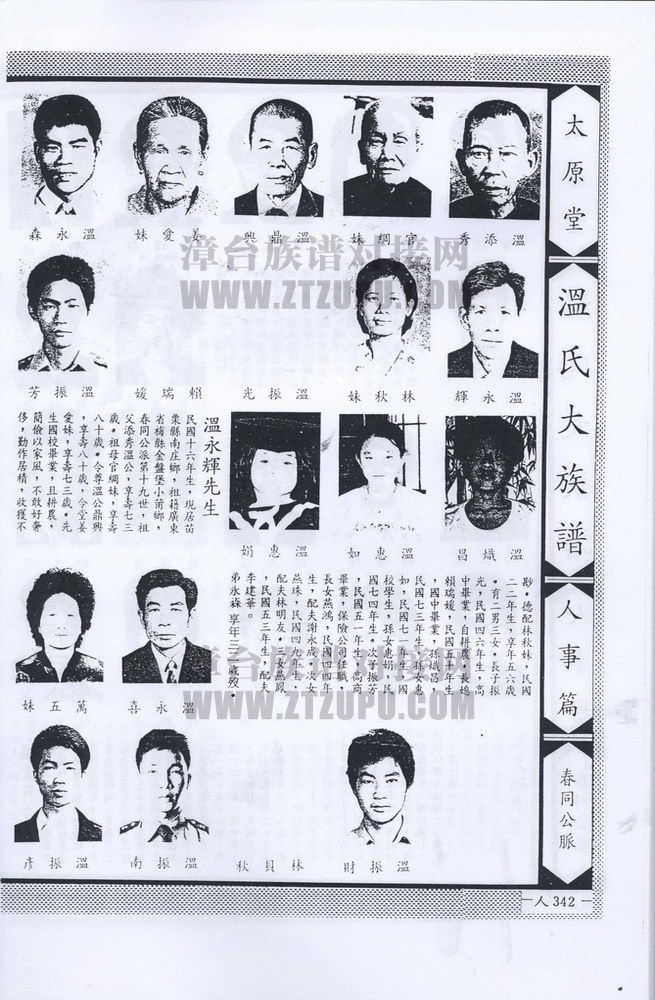 太原堂
溫氏大族譜
人事篇
春同公脈
秀添溫
妹綢官
興鼎溫
妹愛姜
森永溫
輝永溫
妹秋林
光振溫
媛瑞賴
芳振溫
昌熾溫
如惠溫
娟惠溫
溫永輝先生
民國十六年生，現居苗
栗縣南庄鄉，祖籍廣東
省梅縣金盤堡小莆鄉，
春同公派第十九世，祖
父添秀溫公，享壽七三
歲。祖母官綢妹，享壽
八十歲。令尊溫公鼎興
，享壽七八十歲，令堂姜
愛妹，享壽七三歲。先
生國校畢業，且耕農，
簡儉以家風，不敢好奢
侈，勤作居積，收獲不
尠。德配林秋妹，民國
二二年生，享年五六歲
。育二男三女。長子振
光，民國四六年生，高
中畢業，自耕農，長媳
賴瑞媛，民國五一年生
，國中畢業，孫熾昌，
民國七三年生，孫女惠
如，民國七一年生，國
校學生，孫女惠娟，民
國七四年生。次子振芳
，民國五一年生，高商
畢業，保險公司任職，
長女燕鴻，民國四四年
生，配夫謝永成，次女
燕珠，民國四九年生，
配夫林明友。三女燕鳳
，民國五三年生，配夫
李建華。
弟永森享年三二歲歿。
喜永溫
妹五萬
財振溫
秋貝林
南振溫
彥振溫
人342
漳台族谱对接网
WWW.ZTZUPU.COM
漳台族谱对接网
WWW.ZTZUPU.COM